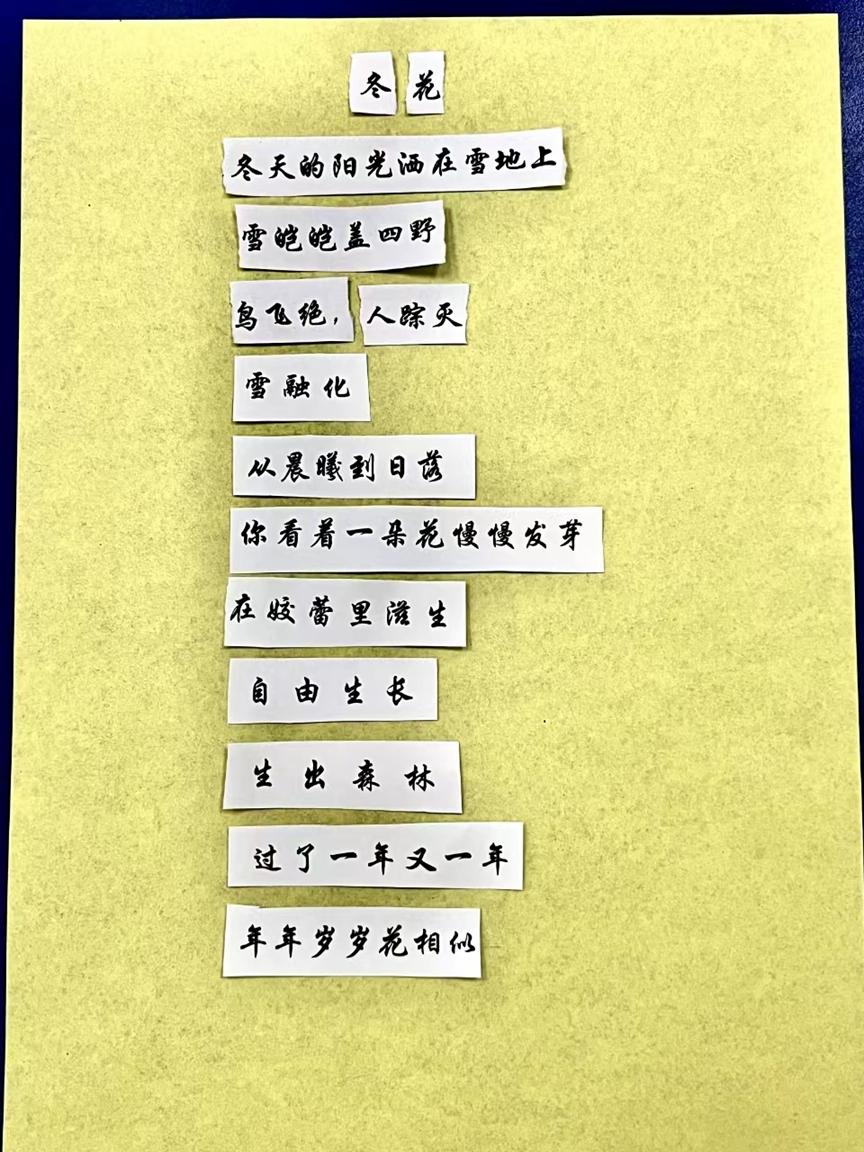 冬花
冬天的阳光洒在雪地上
雪皑皑盖四野
鸟飞绝，人踪灭
雪融化
从晨曦到日落
你看着一朵花慢慢发芽
在姣蕾里滋生
自由生长
生出森林
过了一年又一年
年年岁岁花相似